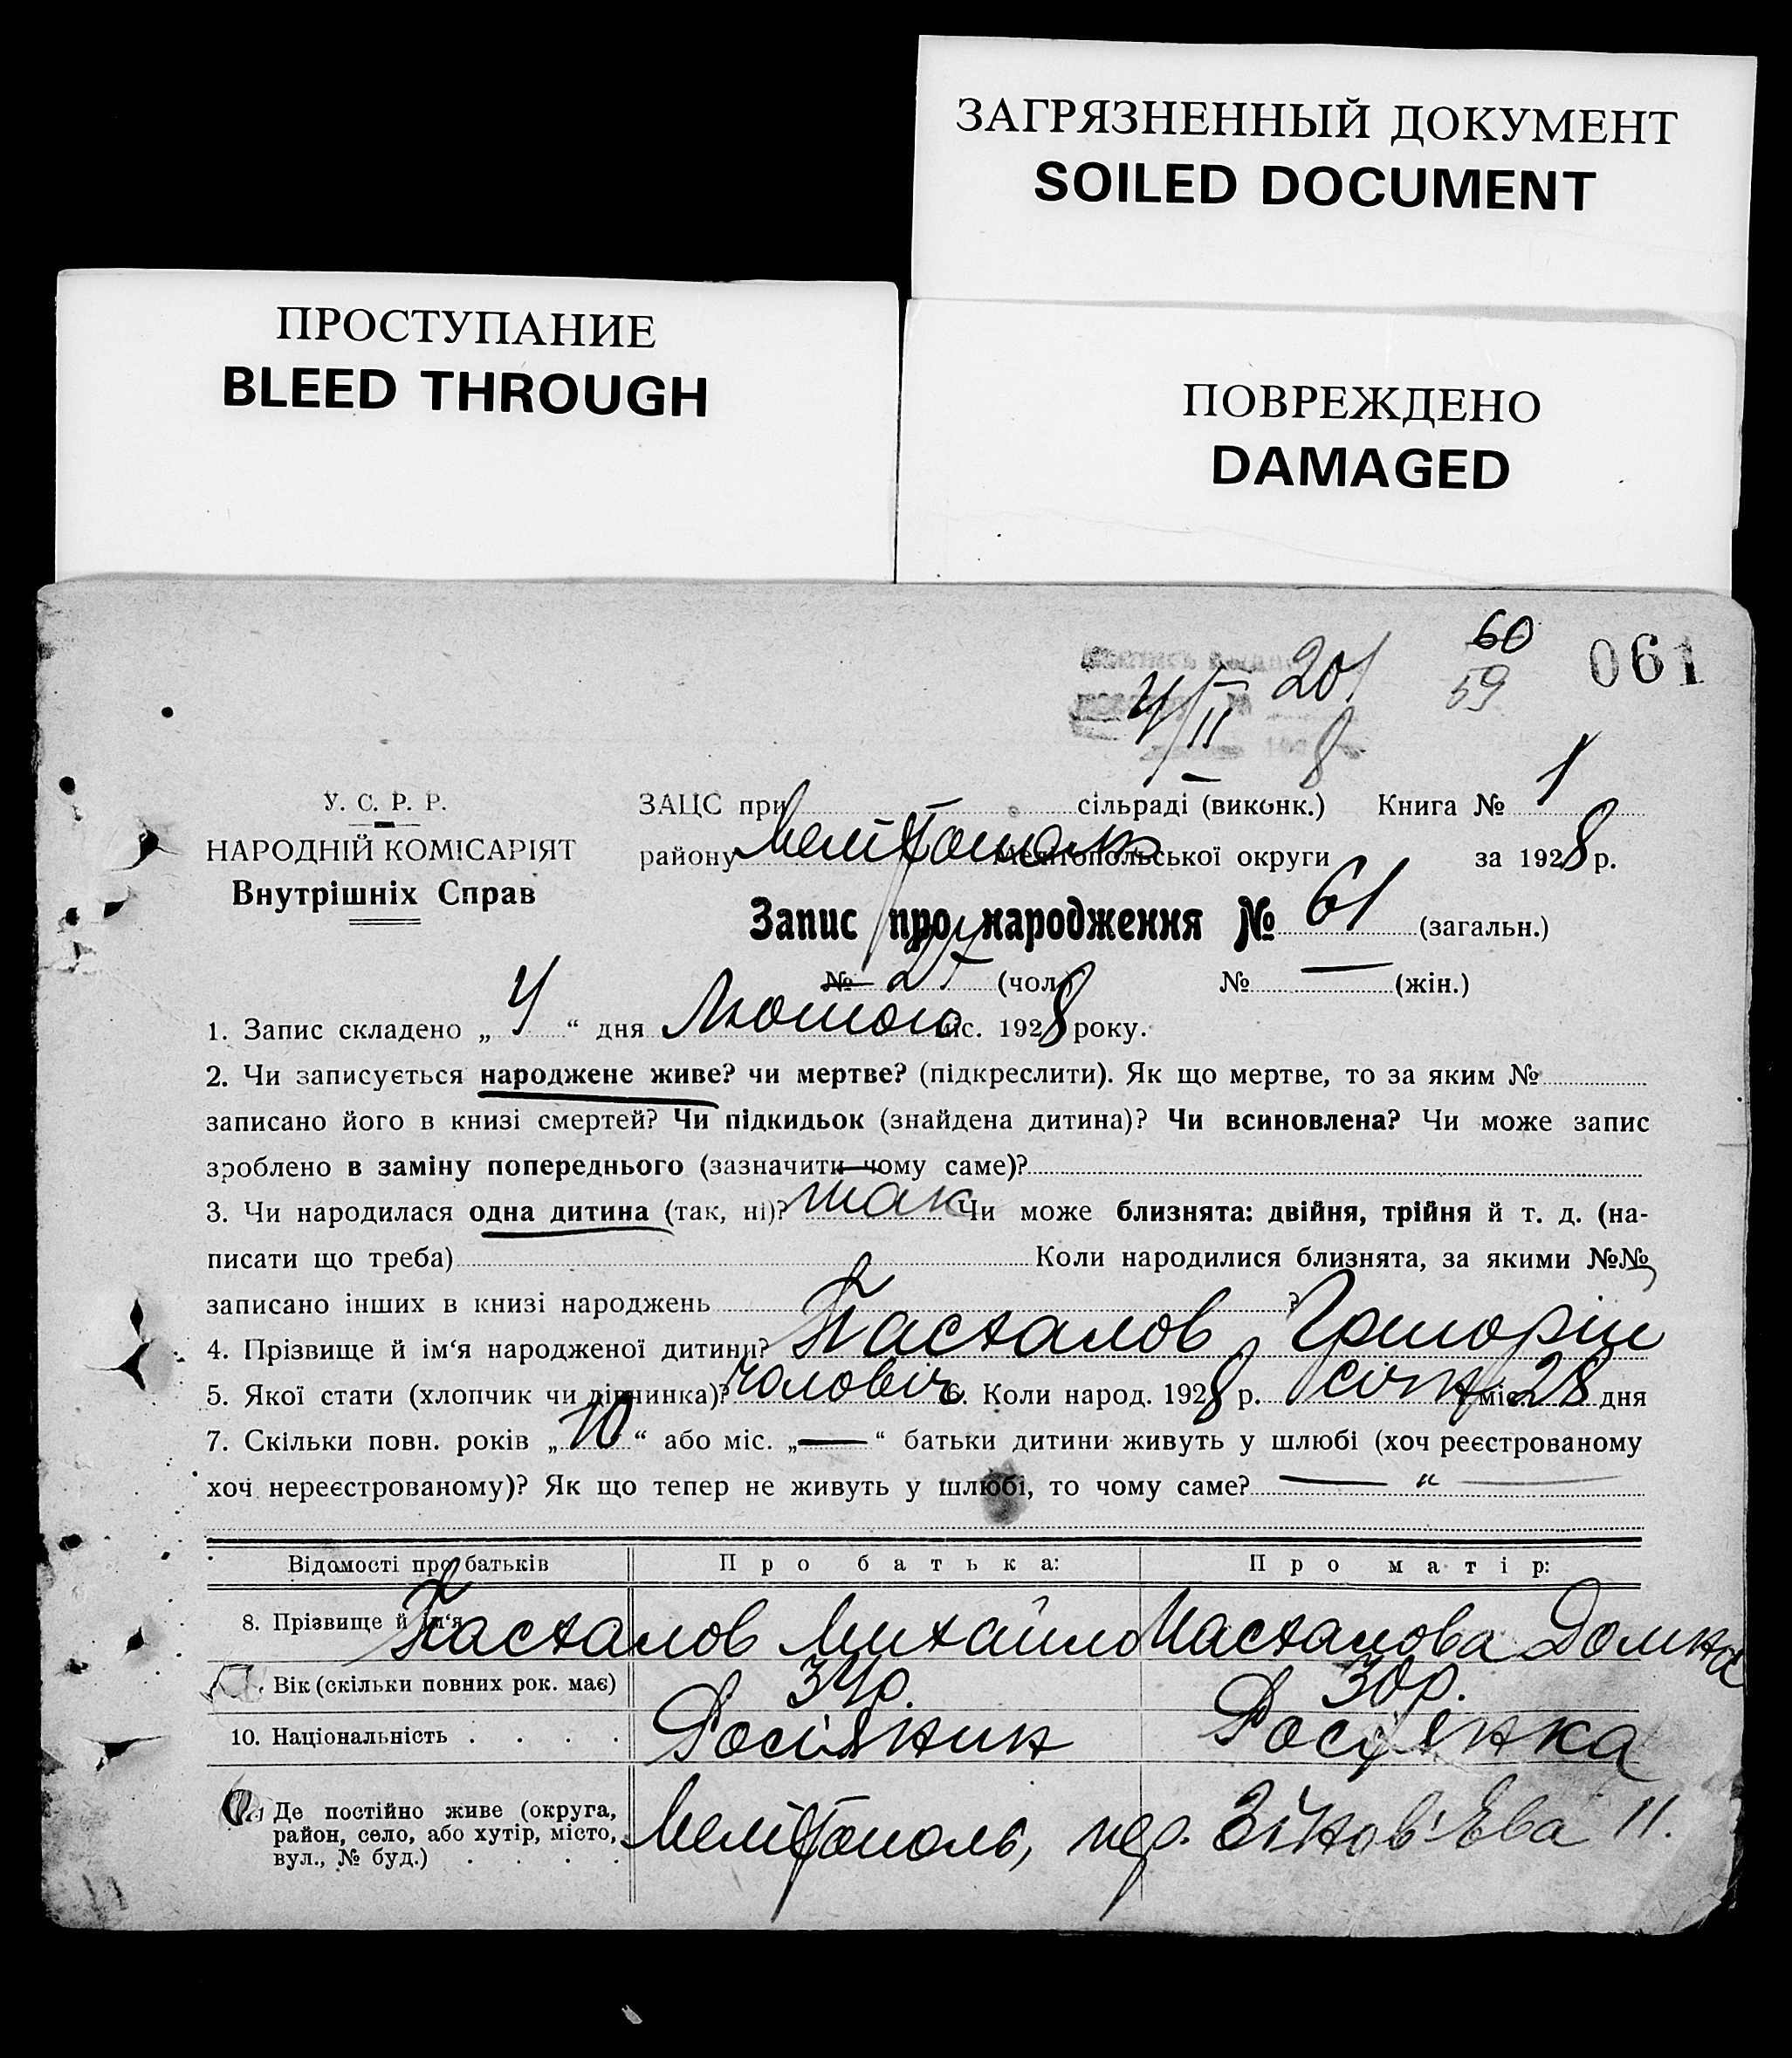 ЗАГРЯЗНЕННЫЙ ДОКУМЕНТ
SOILED DOCUMENT
ПРОСТУПАНИЕ
BLEED THROUGH
ПОВРЕЖДЕНО
DAMAGED
60
59
061
201
4/II
8
У. С. Р. Р.
НАРОДНІЙ КОМІСАРІЯТ
Внутрішніх Справ
ЗАЦС при сільраді (виконк.) Книга № 1
району Мелітополь Мелітопольської округи за 1928 р.
Запис про народження № 61 (загальн.)
№ 27 (чол.) № — (жін.)
1. Запис складено „ 4 “ дня Лютого міс. 1928 року.
2. Чи записується народжене живе? чи мертве? (підкреслити). Як що мертве, то за яким №
записано його в книзі смертей? Чи підкидьок (знайдена дитина)? Чи всиновлена? Чи може запис
зроблено в заміну попереднього (зазначити чому саме)?
3. Чи народилася одна дитина (так, ні)? так Чи може близнята: двійня, трійня й т. д. (на-
писати що треба) Коли народилися близнята, за якими №№
записано інших в книзі народжень ?
4. Прізвище й ім‘я народженої дитини? Пасталов Григорій
5. Якої стати (хлопчик чи дівчинка)? чоловіч 6. Коли народ. 1928 р. січня міс. 28 дня
7. Скільки повн. років „ 10 “ або міс. „ — “ батьки дитини живуть у шлюбі (хоч реєстрованому
хоч нереєстрованому)? Як що тепер не живуть у шлюбі, то чому саме? — „ —
Відомості про батьків Про батька: Про матір:
8. Прізвище й ім‘я Пасталов Михайло Пасталова Домна
Вік (скільки повних рок. має) 34р. 30р.
10. Національність . . . . Росіянин Росіянка
Де постійно живе (округа,
район, село, або хутір, місто,
вул., № буд.) . . . . Мелітополь, пер. Зінов'єва 11.